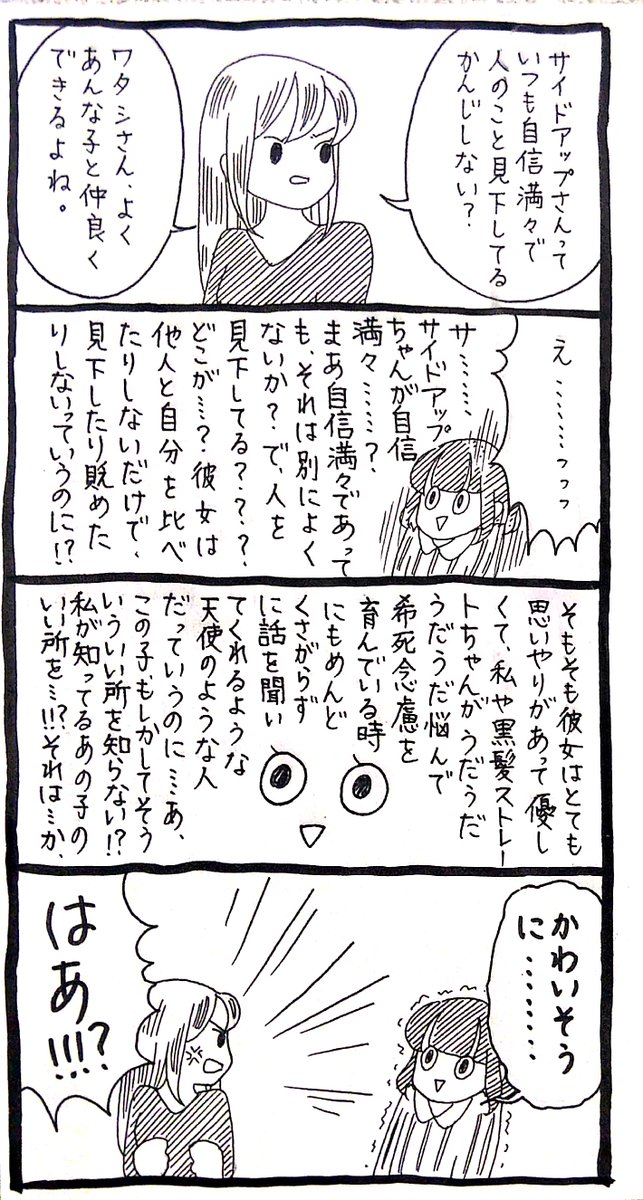 サイドアップさんって
いつも自信満々で
人のこと見下してる
かんじしない?
ワタシさん、よく
あんな子と仲良く
できるよね。
え………っっっ
サ……
サイドアップ
ちゃんが自信
満々……?
まあ自信満々であって
も、それは別によく
ないか?で、人を
見下してる????
どこが…?彼女は
他人と自分を比べ
たりしないだけで、
見下したり貶めた
りしないっていうのに!?
そもそも彼女はとても
思いやりがあって優し
くて、私や黒髪ストレー
トちゃんがうだうだ
うだうだ悩んで
希死念慮を
育んでいる時
にもめんど
くさがらず
に話を聞い
てくれるような
天使のような人
だっていうのに…あ、
この子もしかしてそう
いういい所を知らない!?
私が知ってるあの子の
いい所を…!!?それは…か、
かわいそう
に………
はあ!!!?